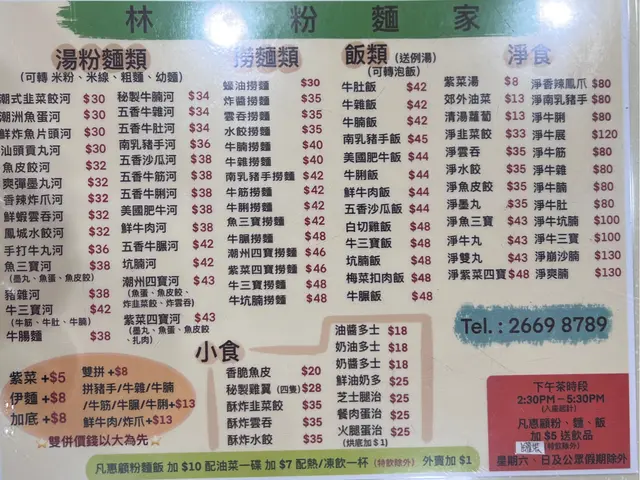 林 粉麵家
湯粉麵類
(可轉 米粉、米線、粗麵、幼麵)
潮式韭菜餃河 $30
潮洲魚蛋河 $30
鮮炸魚片頭河 $30
汕頭貢丸河 $30
魚皮餃河 $32
爽彈墨丸河 $32
香辣炸爪河 $32
鮮蝦雲吞河 $32
鳳城水餃河 $32
手打牛丸河 $36
魚三寶河 $38
(墨丸、魚蛋、魚皮餃)
豬雜河 $38
牛三寶河 $42
(牛筋、牛肚、牛腩)
牛腸麵 $38
秘製牛腩河 $34
五香牛雜河 $34
五香牛肚河 $34
南乳豬手河 $36
五香沙瓜河 $38
五香牛筋河 $38
五香牛脷河 $38
美國肥牛河 $38
鮮牛肉河 $38
五香牛𦟌河 $42
坑腩河 $42
潮州四寶河 $43
(魚蛋、魚皮餃、
炸韭菜餃、炸雲吞)
紫菜四寶河 $43
(墨丸、魚蛋、魚皮餃、
扎肉)
撈麵類
蠔油撈麵 $30
炸醬撈麵 $35
雲吞撈麵 $35
水餃撈麵 $35
牛腩撈麵 $40
牛雜撈麵 $40
南乳豬手撈麵 $42
牛筋撈麵 $42
牛脷撈麵 $42
魚三寶撈麵 $42
牛𦟌撈麵 $48
潮州四寶撈麵 $46
紫菜四寶撈麵 $46
牛三寶撈麵 $48
牛坑腩撈麵 $48
飯類 (送例湯)
(可轉泡飯)
牛肚飯 $42
牛雜飯 $42
牛腩飯 $42
南乳豬手飯 $45
美國肥牛飯 $44
牛脷飯 $44
鮮牛肉飯 $44
五香沙瓜飯 $44
白切雞飯 $48
牛三寶飯 $48
坑腩飯 $48
梅菜扣肉飯 $48
牛𦟌飯 $48
淨食
紫菜湯 $8
郊外油菜 $13
清湯蘿蔔 $13
淨韭菜餃 $33
淨雲吞 $35
淨水餃 $35
淨魚皮餃 $35
淨墨丸 $35
淨魚三寶 $43
淨牛丸 $43
淨雙丸 $43
淨紫菜四寶 $48
淨香辣鳳爪 $80
淨南乳豬手 $80
淨牛脷 $80
淨牛展 $120
淨牛筋 $80
淨牛雜 $80
淨牛腩 $80
淨牛肚 $80
淨牛坑腩 $100
淨牛三寶 $100
淨崩沙腩 $130
淨爽腩 $130
Tel. : 2669 8789
紫菜 +$5
伊麵 +$8
加底 +$8
雙拼 +$8
拼豬手/牛雜/牛腩
/牛筋/牛𦟌/牛脷+$13
鮮牛肉/炸爪+$13
雙併價錢以大為先
小食
香脆魚皮 $20
秘製雞翼 (四隻) $28
酥炸韭菜餃 $35
酥炸雲吞 $35
酥炸水餃 $35
油醬多士 $18
奶油多士 $18
奶醬多士 $18
鮮油奶多 $25
芝士腿治 $25
餐肉蛋治 $25
火腿蛋治 $25
(烘底加 $1)
下午茶時段
2:30PM－5:30PM
凡惠顧粉、麵、飯
加 $5 送飲品
(特飲除外)
星期六、日及公眾假期除外
凡惠顧粉麵飯 加 $10 配油菜一碟 加 $7 配熱/凍飲一杯 (特飲除外) 外賣加 $1